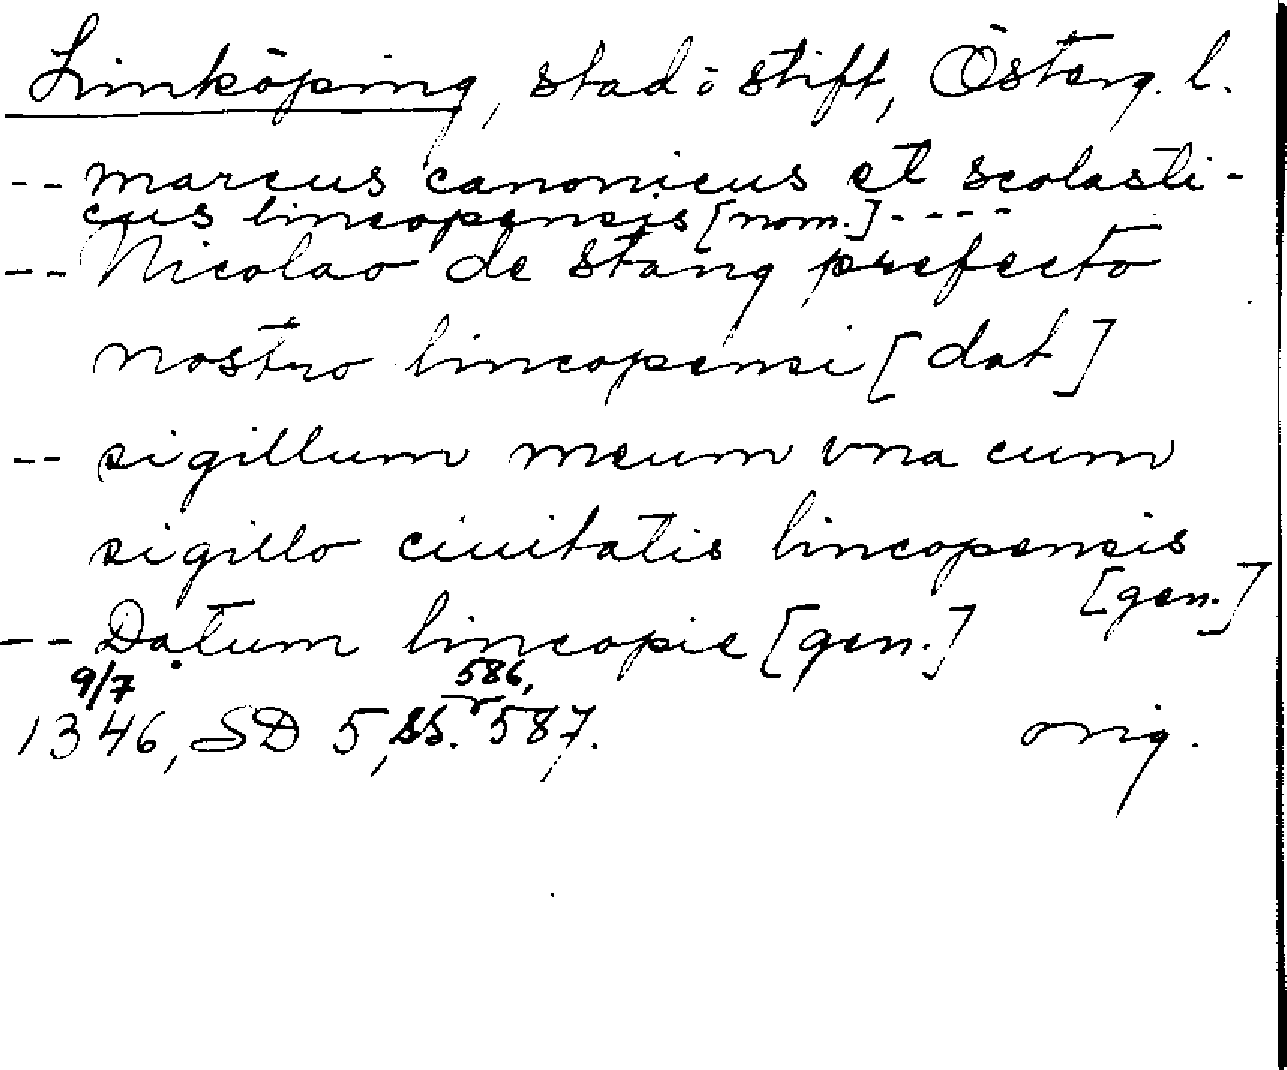 Linköping, stad o stift, Österg. l.
-- marcus canonicus et scolasti-
cus lincopensis [nom.] - - - -
-- Nicolao de stang prefecto
nostro lincopensi [dat]
-- sigillum meum vna cum
sigillo ciuitatis lincopensis
[gen.]
-- Datum lincopie [gen.]
9/7 586,
1346, SD 5, ss. 587. orig.